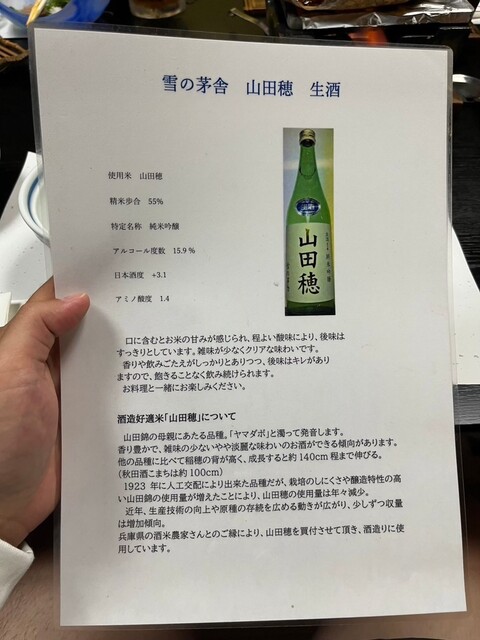 雪の茅舎　山田穂　生酒
使用米　山田穂
精米歩合　55%
特定名称　純米吟醸
アルコール度数　15.9 %
日本酒度　+3.1
アミノ酸度　1.4
山田穂
口に含むとお米の甘みが感じられ、程よい酸味により、後味は
すっきりとしています。雑味が少なくクリアな味わいです。
香りや飲みごたえがしっかりとありつつ、後味はキレがあり
ますので、飽きることなく飲み続けられます。
お料理と一緒にお楽しみください。
酒造好適米「山田穂」について
山田錦の母親にあたる品種。「ヤマダボ」と濁って発音します。
香り豊かで、雑味の少ないやや淡麗な味わいのお酒ができる傾向があります。
他の品種に比べて稲穂の背が高く、成長すると約 140cm 程まで伸びる。
（秋田酒こまちは約 100cm）
1923 年に人工交配により出来た品種だが、栽培のしにくさや醸造特性の高
い山田錦の使用量が増えたことにより、山田穂の使用量は年々減少。
近年、生産技術の向上や原種の存続を広める動きが広がり、少しずつ収量
は増加傾向。
兵庫県の酒米農家さんとのご縁により、山田穂を買付させて頂き、酒造りに使
用しています。